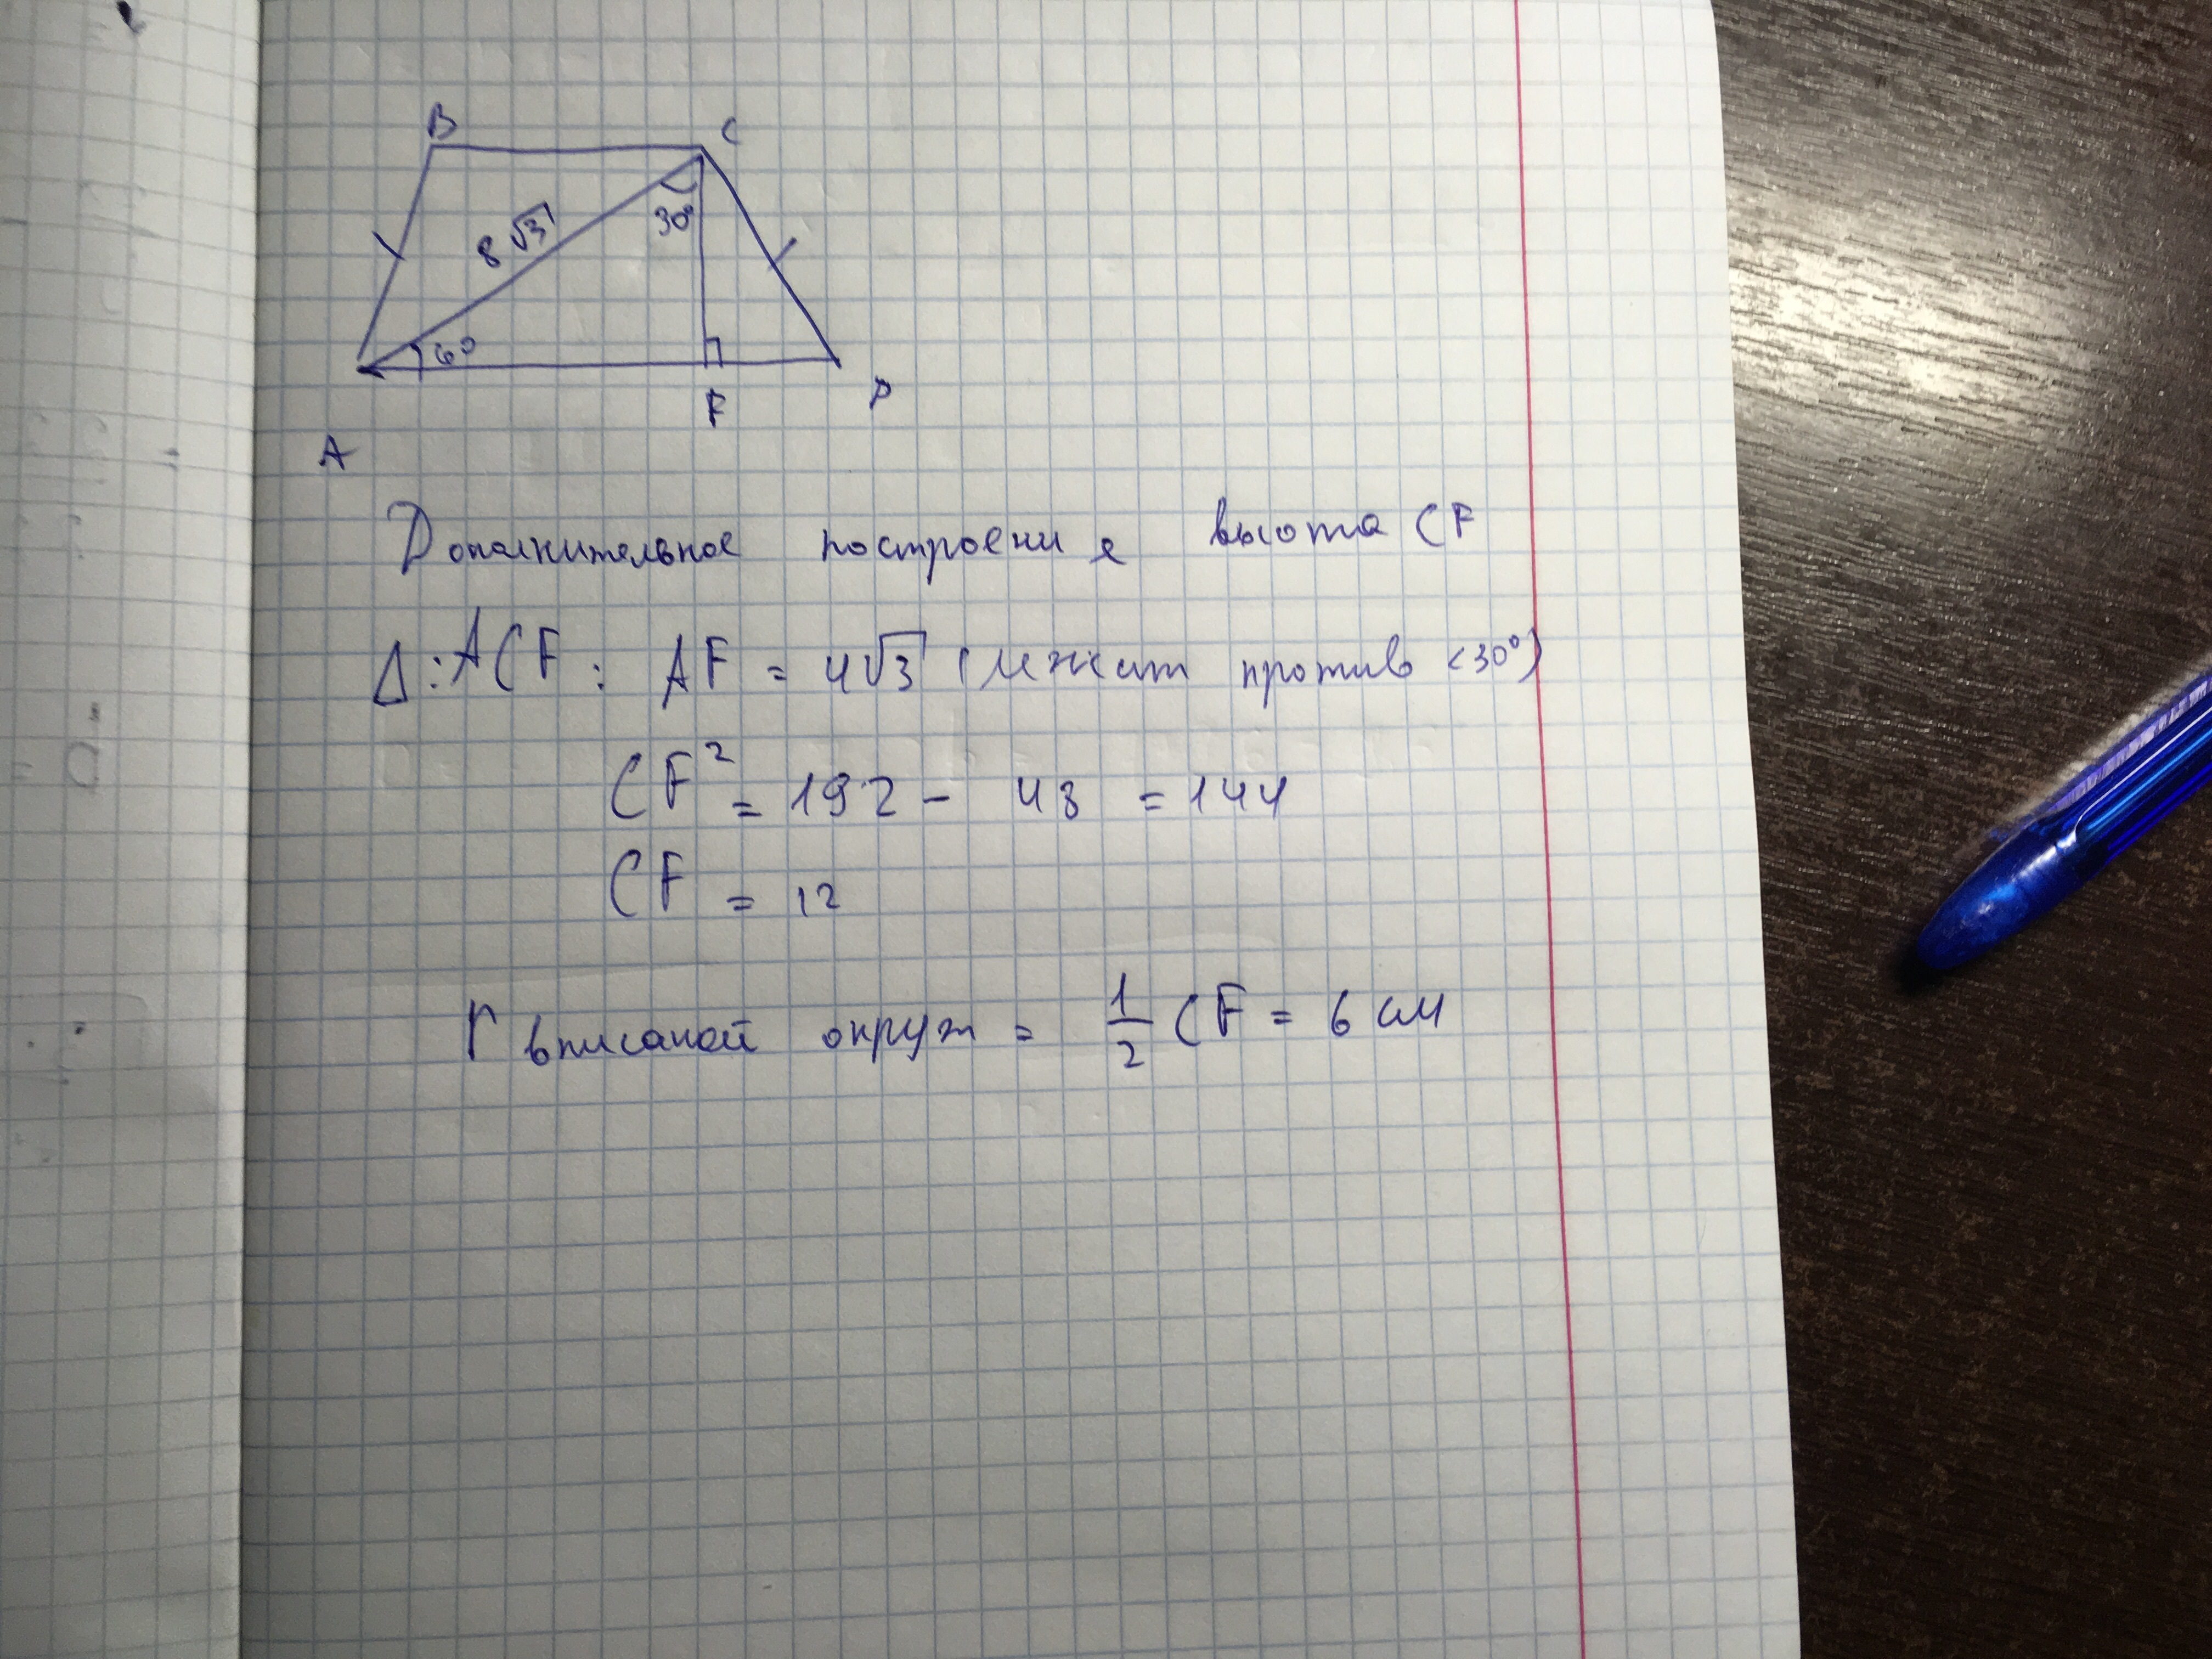 B C
8√3 30°
60
F D
A
Дополнительное построение высота CF
Δ: ACF: AF = 4√3 (лежит против <30°)
CF² = 192 - 48 = 144
CF = 12
r вписаной окруж = 1/2 CF = 6 см